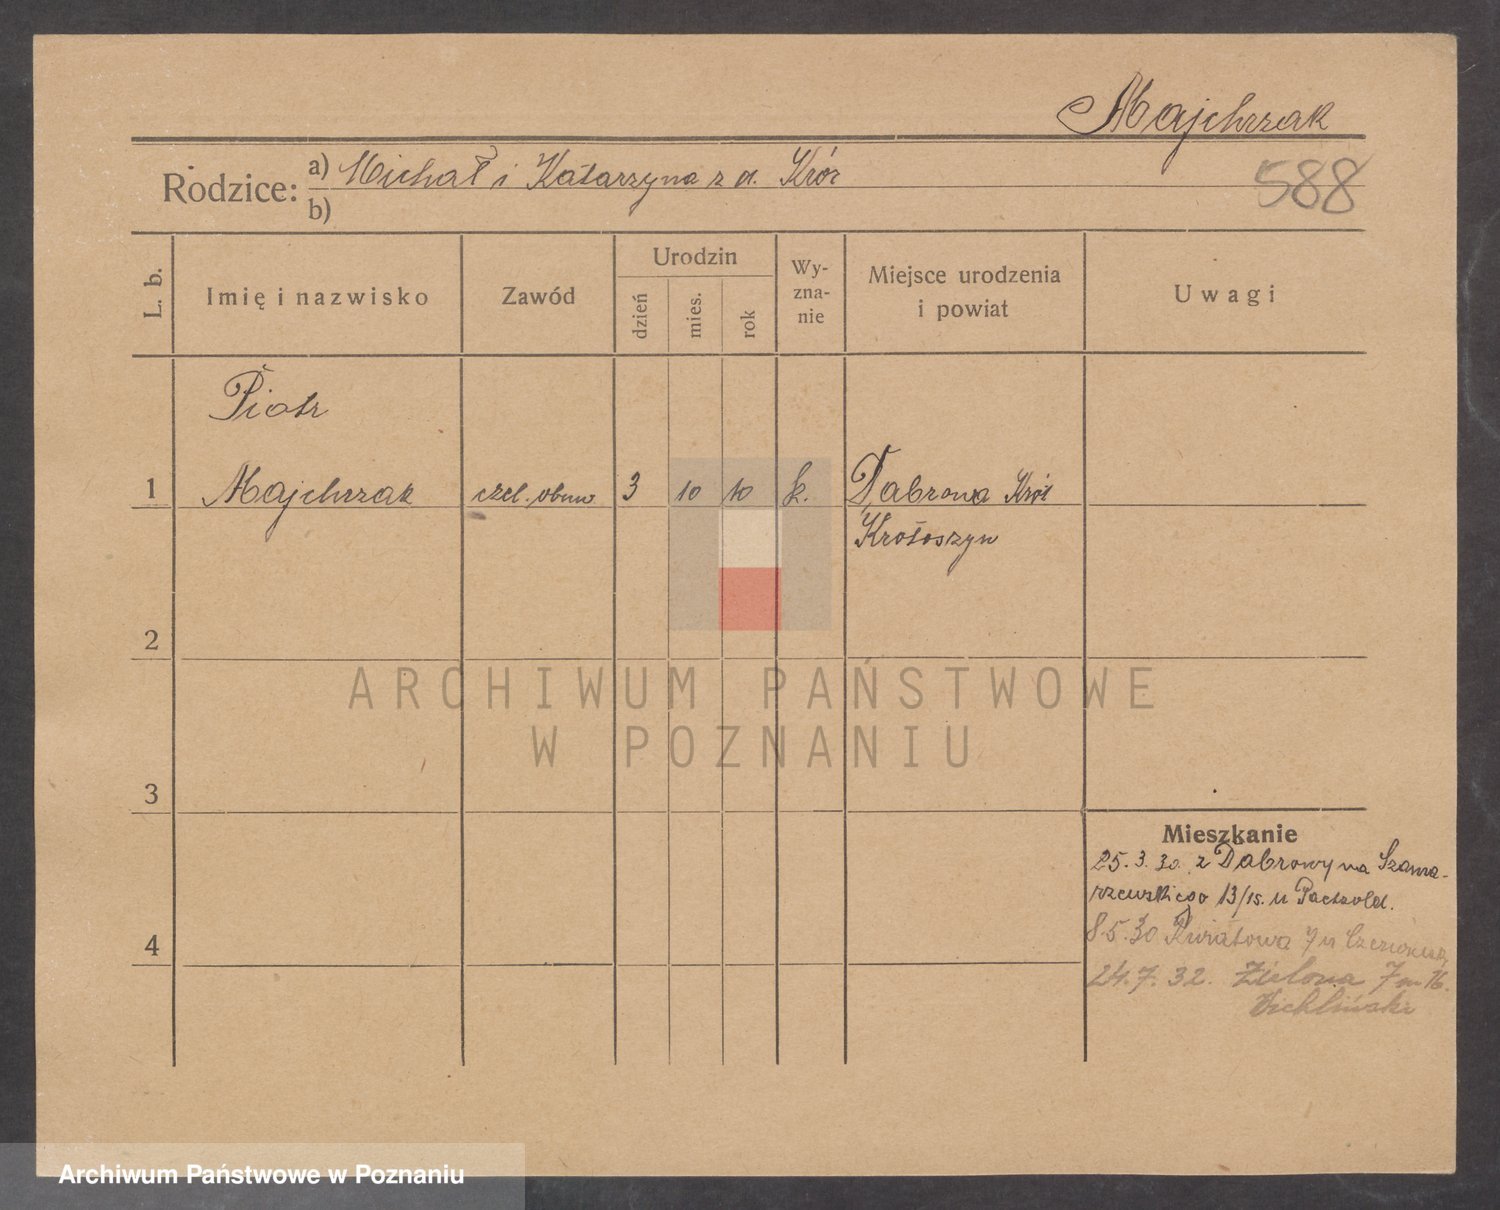 Majchrzak
588
Rodzice: a) Michał i Katarzyna z d. Król
b)
L. b.
Imię i nazwisko
Zawód
Urodzin
dzień
mies.
rok
Wy-
zna-
nie
Miejsce urodzenia
i powiat
Uwagi
Piotr
1 Majchrzak czel. obuw. 3 10 10 k. Dąbrowa
Krotoszyn
2
ARCHIWUM PAŃSTWOWE
W POZNANIU
3
Mieszkanie
25.3.30. z Dąbrowy na Szama-
rzewskiego 13/15. u Paetzold.
4
8.5.30 Kwiatowa 7 u
24.7.32. Zielona 7 m 16.
Archiwum Państwowe w Poznaniu